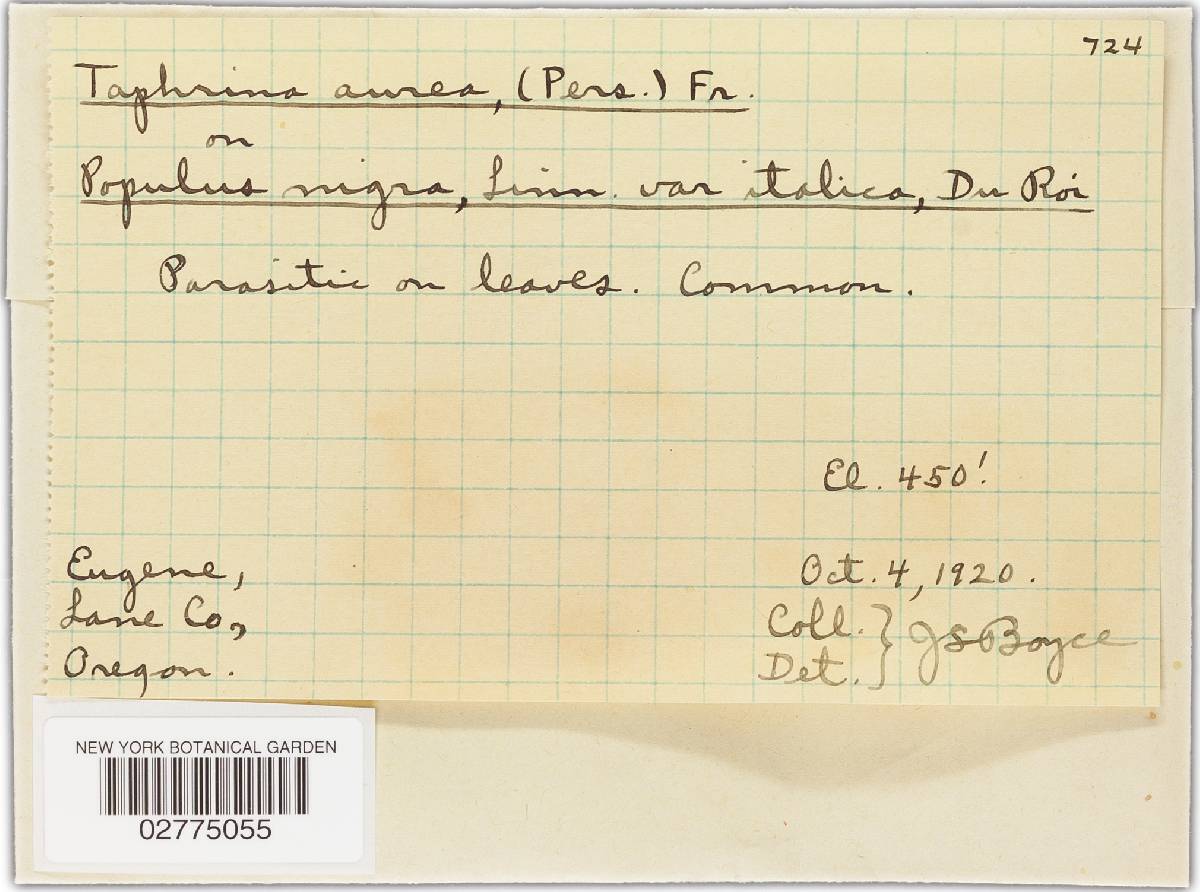 724
Taphrina aurea, (Pers.) Fr.
on
Populus nigra, Linn. var italica, Du Roi
Parasitic on leaves. Common.
El. 450'.
Eugene,
Lane Co.,
Oregon.
Oct. 4, 1920.
Coll. } JSBoyce
Det.
NEW YORK BOTANICAL GARDEN
02775055